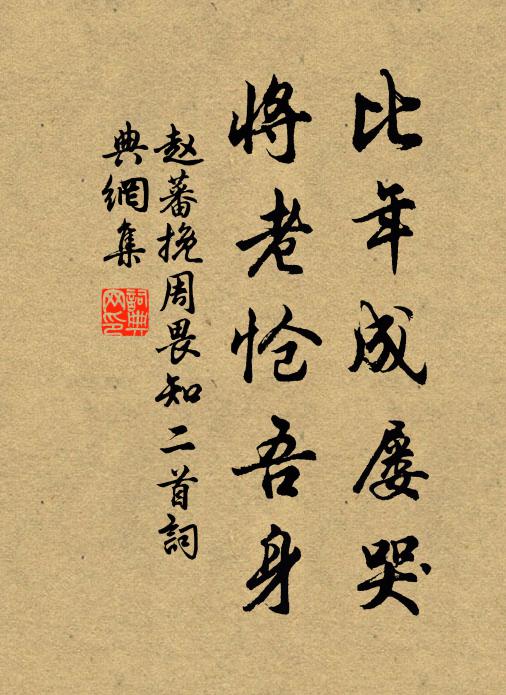 比年成屡哭
将老怆吾身
赵蕃挽周畏知二首词
典網集
詞典
网印